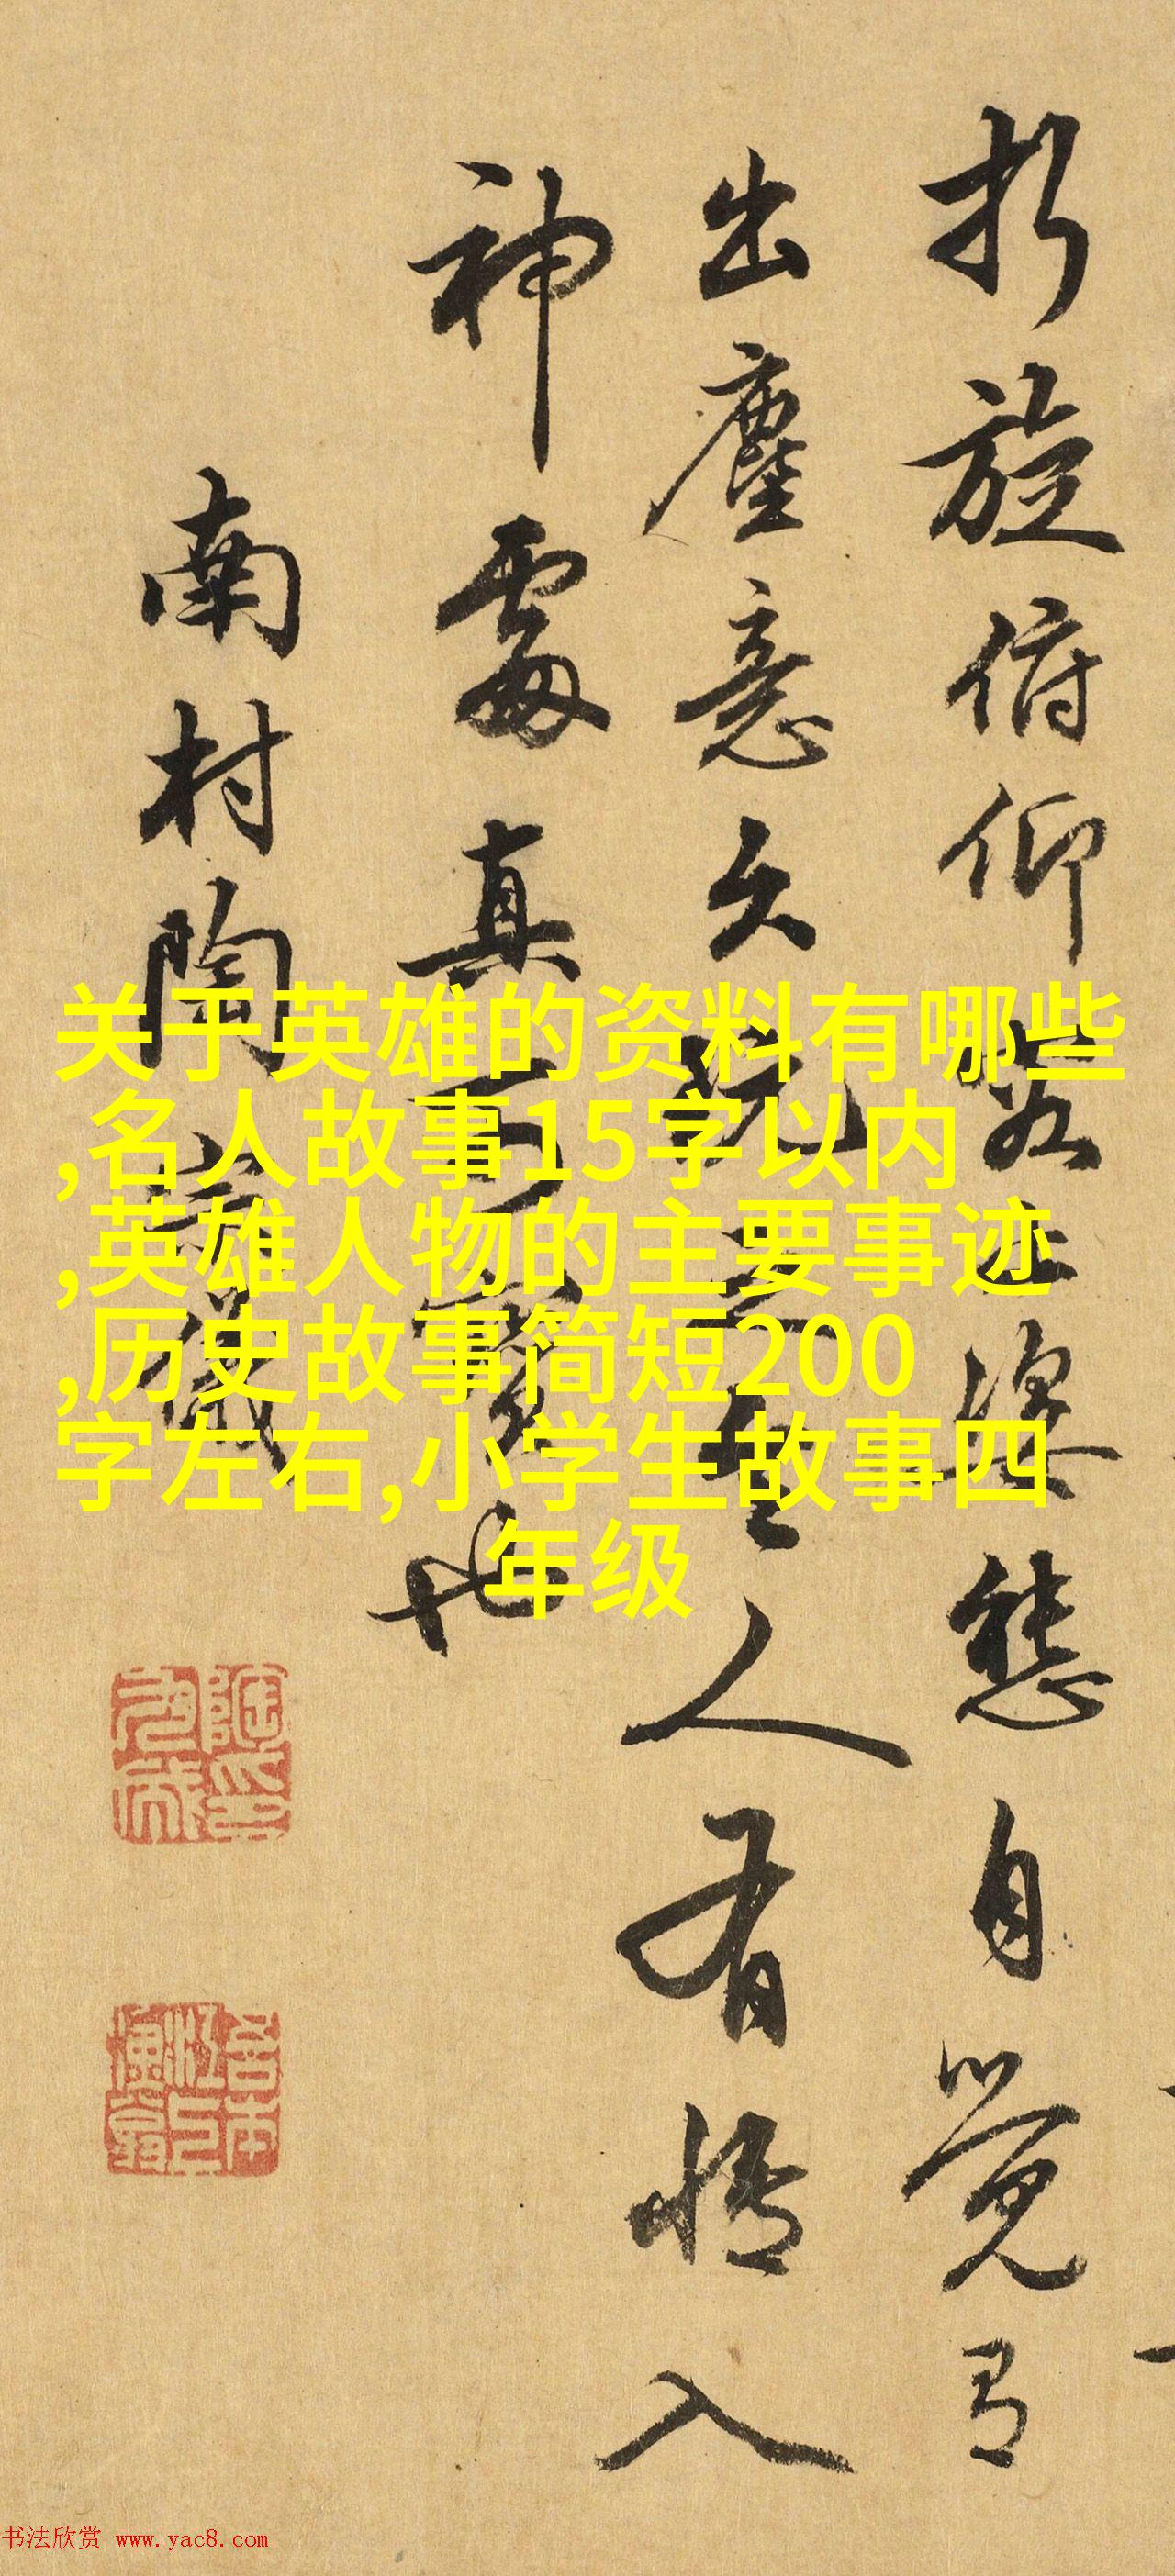 折旋俯仰数十姿態自覺有
出塵意久玩之令人有情入
神處真可寶也
南村陶宗儀
关于英雄的资料有哪些
,名人故事15字以内
,英雄人物的主要事迹
,历史故事简短200
字左右,小学生故事四
年级
书法欣赏 www.yac8.com